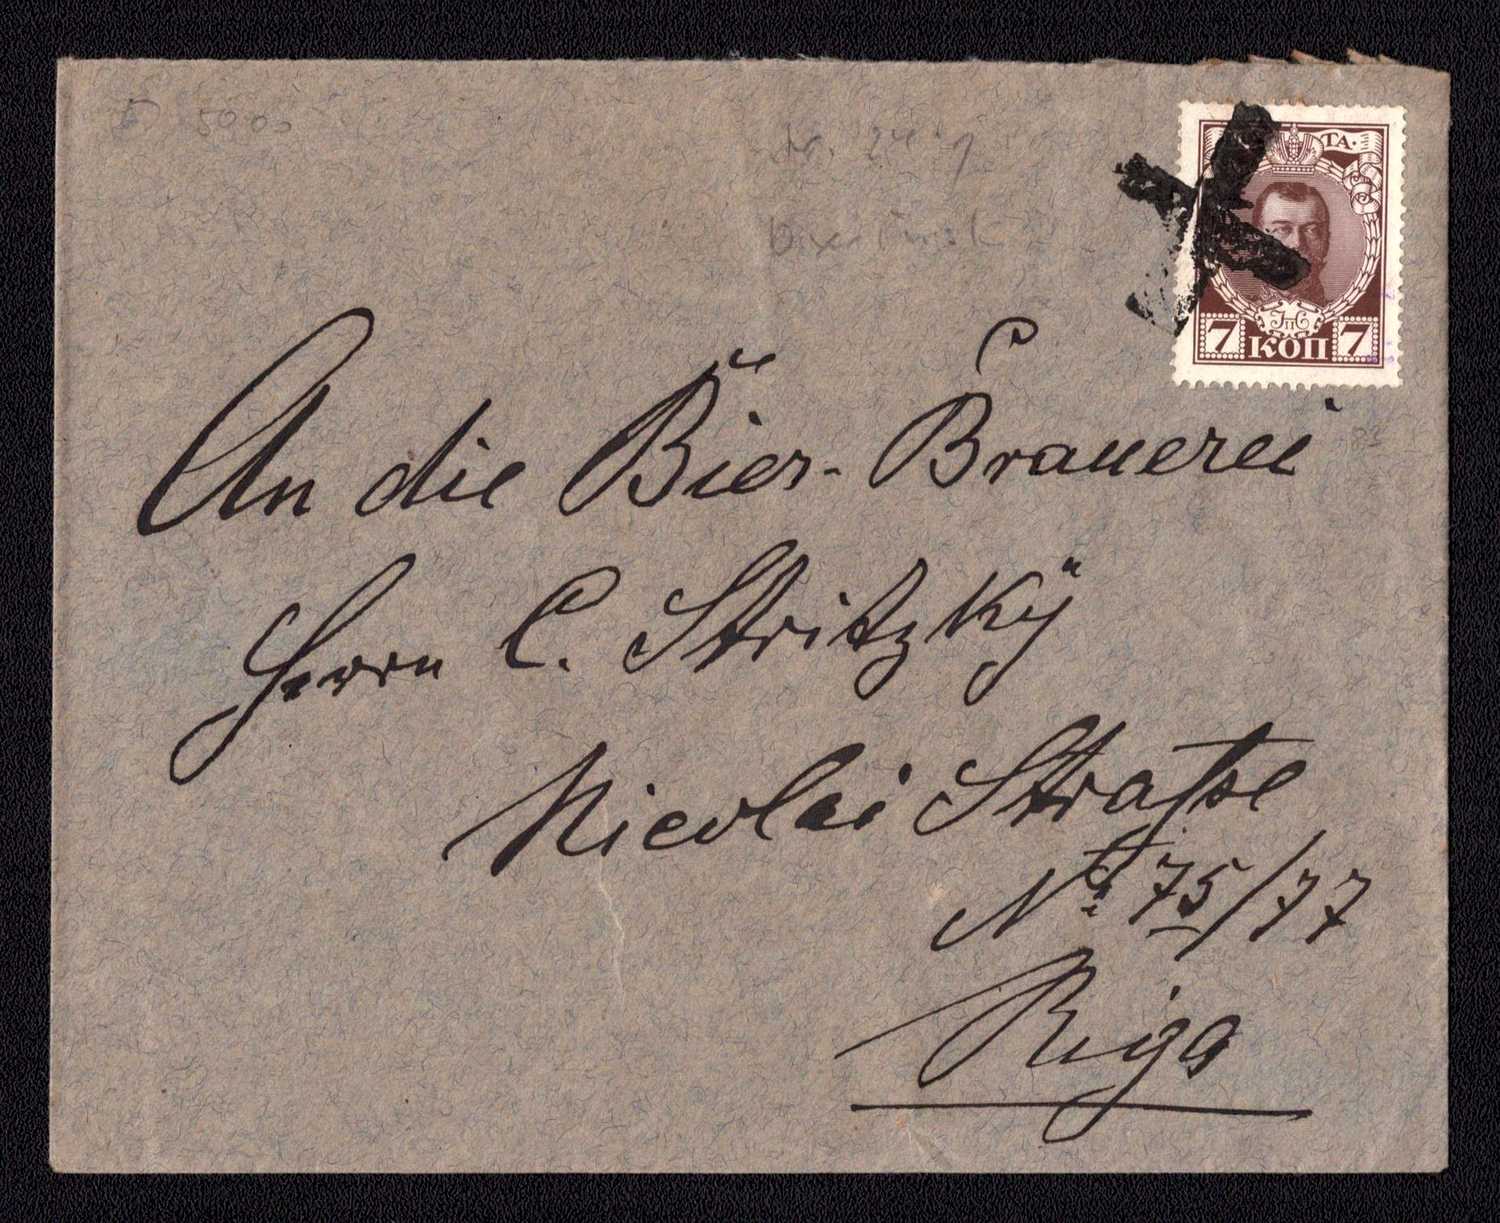 5000
ТА·
7 КОП 7
An die Bier-Brauerei
Herrn C. Stritzkÿ
Nicolai Straße
No 75/77
Riga